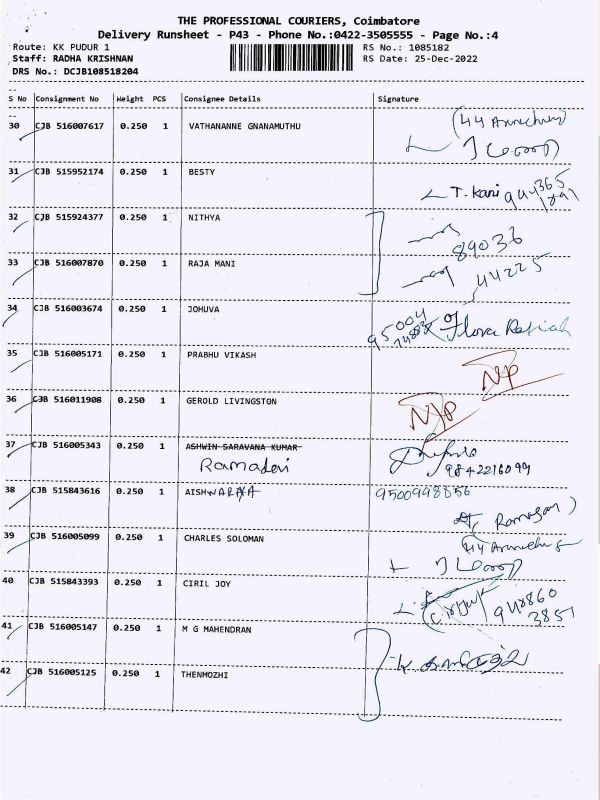 THE PROFESSIONAL COURIERS, Coimbatore
Delivery Runsheet - P43 - Phone No.:0422-3505555 - Page No.:4
Route: KK PUDUR 1 RS No.: 1085182
Staff: RADHA KRISHNAN RS Date: 25-Dec-2022
DRS No.: DCJB108518204
S No Consignment No Weight PCS Consignee Details Signature
30 CJB 516007617 0.250 1 VATHANANNE GNANAMUTHU
31 CJB 515952174 0.250 1 BESTY
T. Kani
32 CJB 515924377 0.250 1 NITHYA
89036
33 CJB 516007870 0.250 1 RAJA MANI
44225
34 CJB 516003674 0.250 1 JOHUVA
95004
Flora
35 CJB 516005171 0.250 1 PRABHU VIKASH
N/P
36 CJB 516011908 0.250 1 GEROLD LIVINGSTON
N/P
37 CJB 516005343 0.250 1 ASHWIN SARAVANA KUMAR
Ramadevi 9842216099
38 CJB 515843616 0.250 1 AISHWARYA 9500998856
39 CJB 516005099 0.250 1 CHARLES SOLOMAN
40 CJB 515843393 0.250 1 CIRIL JOY
948860
3851
41 CJB 516005147 0.250 1 M G MAHENDRAN
42 CJB 516005125 0.250 1 THENMOZHI